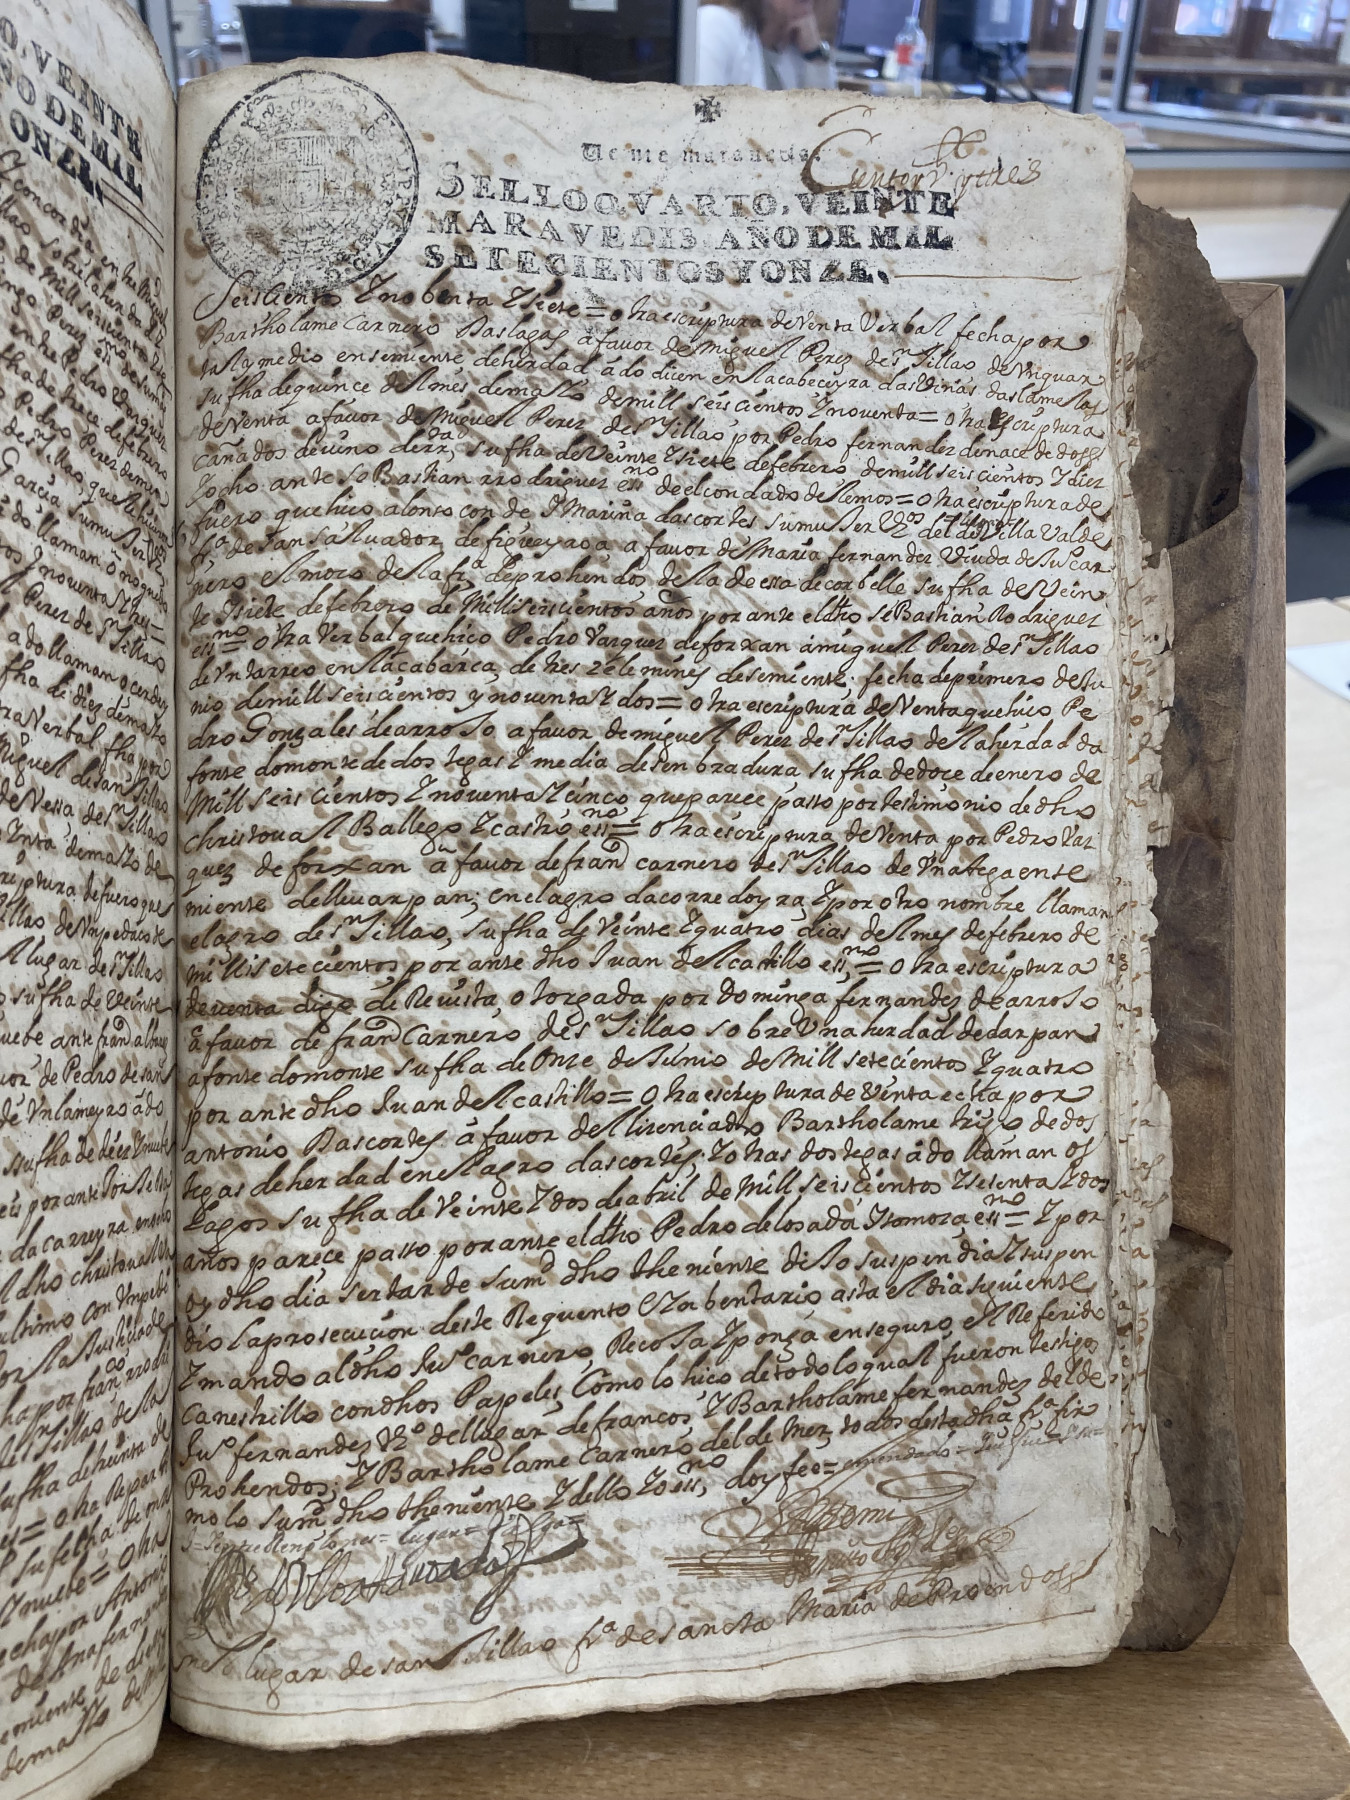 Veinte maravedis.
Ciento y tres
SELLO QVARTO, VEINTE
MARAVEDIS, AÑO DE MIL
SETECIENTOS Y ONZE.
Seiscientos Y nobenta Y siete = otra escriptura de Venta Verbal fecha por
Bartholame Carnero Daslagas á favor de Miguel Perez de sn Jillao de
tala y medio en semiente deherdad ádo dicen en la cabeceyra das Viñas das lamelas
su fha de quince del mes de maio de mill seiscientos Y noventa = otra Escriptura
de Venta a favor de Miguel Perez de sn Jillao por Pedro fernandez de nace de doss
cañados de vino su fha de Veinte Y siete de febrero de mill seiscientos Y diez
Y ocho ante seBastian rrodriguez essno de el condado de lemos = otra escriptura de
fuero que hico alonso con de Y Marina dascortes su muller Vºs del de Villa Valde
frª de san saluador de figueyroa a favor de Maria fernandez Viuda de Car
nero el moço de la frª de prohendos de la de essa de corbelle su fha de Vein
te Y siete de febrero de Mill seiscientos años por ante el dho seBastian Rodriguez
essno = otra Verbal que hico Pedro Vazquez de forxan á miguel Perez de sn Jillao
de Vn tarreo en la cabárca, de tres zelemines de semiente. fecha de primero de Ju
nio de mill seiscientos y noventa Y dos = otra escriptura de Venta que hico Pe
dro Gonzales de arroJo a favor de miguel Perez de sn Jillao de la herdad da
fonte do monte de dos tegas Y media de senbradura su fha de doce de enero de
Mill seiscientos Y noventa Y cinco que parece passo por testimonio de dho
christoual Ballego Y castro essno = otra escriptura de Venta por Pedro Vaz
quez de forxan á favor de franco carnero de sn Jillao de Vna tega en se
miente de lleuar pan; en el agro da corredoyra, Y por otro nombre llaman
el agro de sn Jillao, su fha de Veinte Y quatro dias del mes de febrero de
mill setecientos por ante dho Juan del castillo essno = otra escriptura
de venta digo de Reuista otorgada por dominga fernandez de arroJo
á favor de franco Carnero de sn Jillao sobre Vna herdad de dar pan
a fonte do monte su fha de Onze de Junio de Mill setecientos Y quatro
por ante dho Juan del castillo = otra escriptura de Venta echa por
antonio Dascortes á favor del licenciado Bartholame trigo de dos
tegas de herdad en el agro dascortes; Y otras dos tegas ádo llaman os
Lagos su fha de Veinte Y dos de abril de Mill seiscientos Y setenta Y dos
años parece passo por ante el dho Pedro de losada Y somoza essno = Y por
oy dho dia ser tarde su md dho theniente diJo suspendia Y suspen
dio la prosecucion deste Requento e Ynbentario asta el dia siguiente
Y mando al dho Juº carnero RecoJa Y ponga en seguro el Referido
canestrillo con dhos Papeles, Como lo hico de todo lo qual fueron testigos
Juº fernandez Vºº del lugar de francos, Y Bartholame fernandez del de
Prohendos; Y Bartholame Carnero del de Mer, todos desta dha frª fir
mo lo su md dho theniente Y dello Yo essno, doy fee = emendado =
entre Renglones = lugar =
Antemi
nel lugar de san Jillao frª de sancta Maria de Proendoss